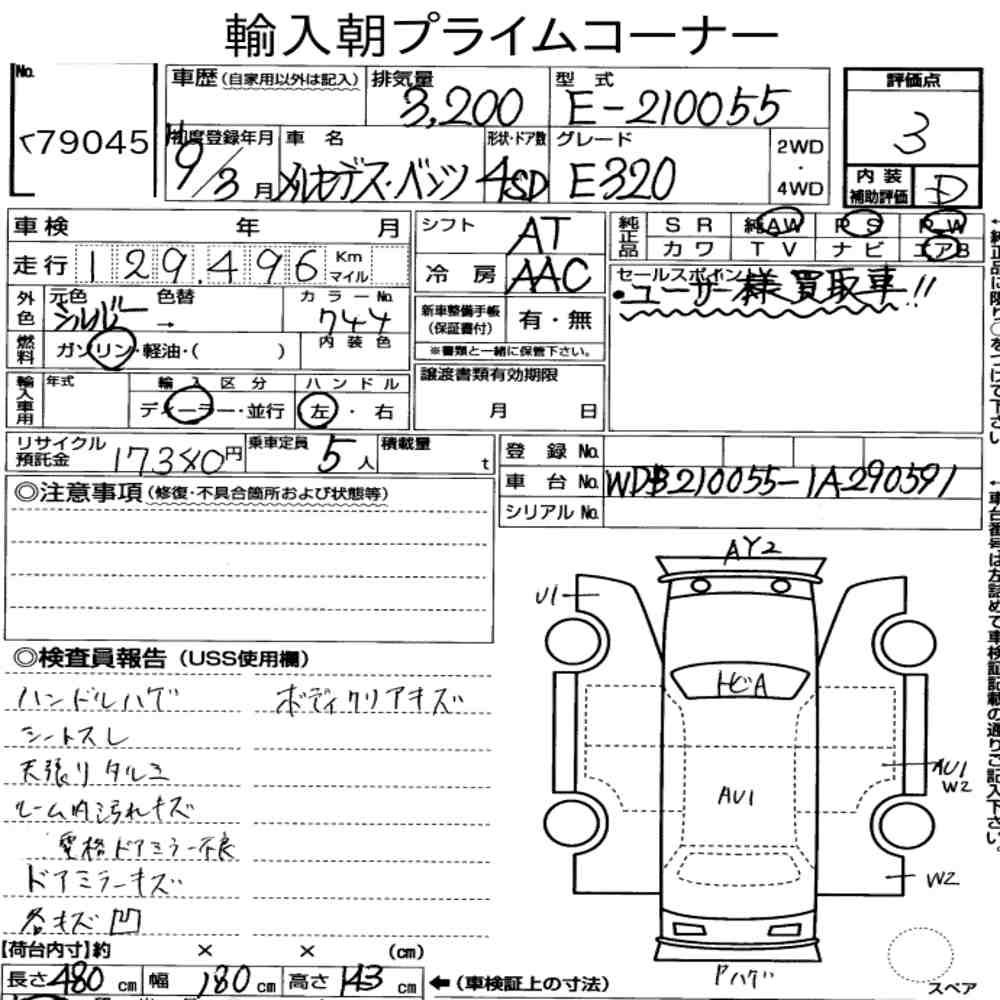 輸入朝プライムコーナー
No.
79045
車歴 (自家用以外は記入)
排気量
3,200
型式
E-210055
評価点
3
初度登録年月
H9/3月
車名
メルセデス・ベンツ
形状・ドア数
4SD
グレード
E320
2WD
・
4WD
内装
補助評価
D
車検 年 月
走行 129,496 Km マイル
シフト
AT
冷房
AAC
純正品
SR 純AW PS P.W
カワ TV ナビ エアB
外色
元色 色替 カラーNo.
シルバー → 744
内装色
燃料
ガソリン・軽油・( )
新車整備手帳
(保証書付)
有・無
※書類と一緒に保管下さい。
セールスポイント
・ユーザー様買取車!!
輸入車用
年式
輸入区分
ディーラー・並行
ハンドル
左・右
譲渡書類有効期限
月 日
リサイクル
預託金
17380円
乗車定員 5人
積載量 t
登録No.
車台No. WDB210055-1A290591
シリアルNo.
◎注意事項 (修復・不具合箇所および状態等)
◎検査員報告 (USS使用欄)
ハンドルハゲ ボディクリアキズ
シートスレ
天張りタルミ
ルーム内汚れキズ
電格ドアミラー不良
ドアミラーキズ
各キズ凹
AY2
U1
トビA
AU1
AU1
W2
W2
Pハゲ
スペア
【荷台内寸】約 × × (cm)
長さ 480 cm 幅 180 cm 高さ 143 cm
←(車検証上の寸法)
←純正品に限り○をつけて下さい
←車台番号は左詰めで車検証記載の通りご記入下さい。